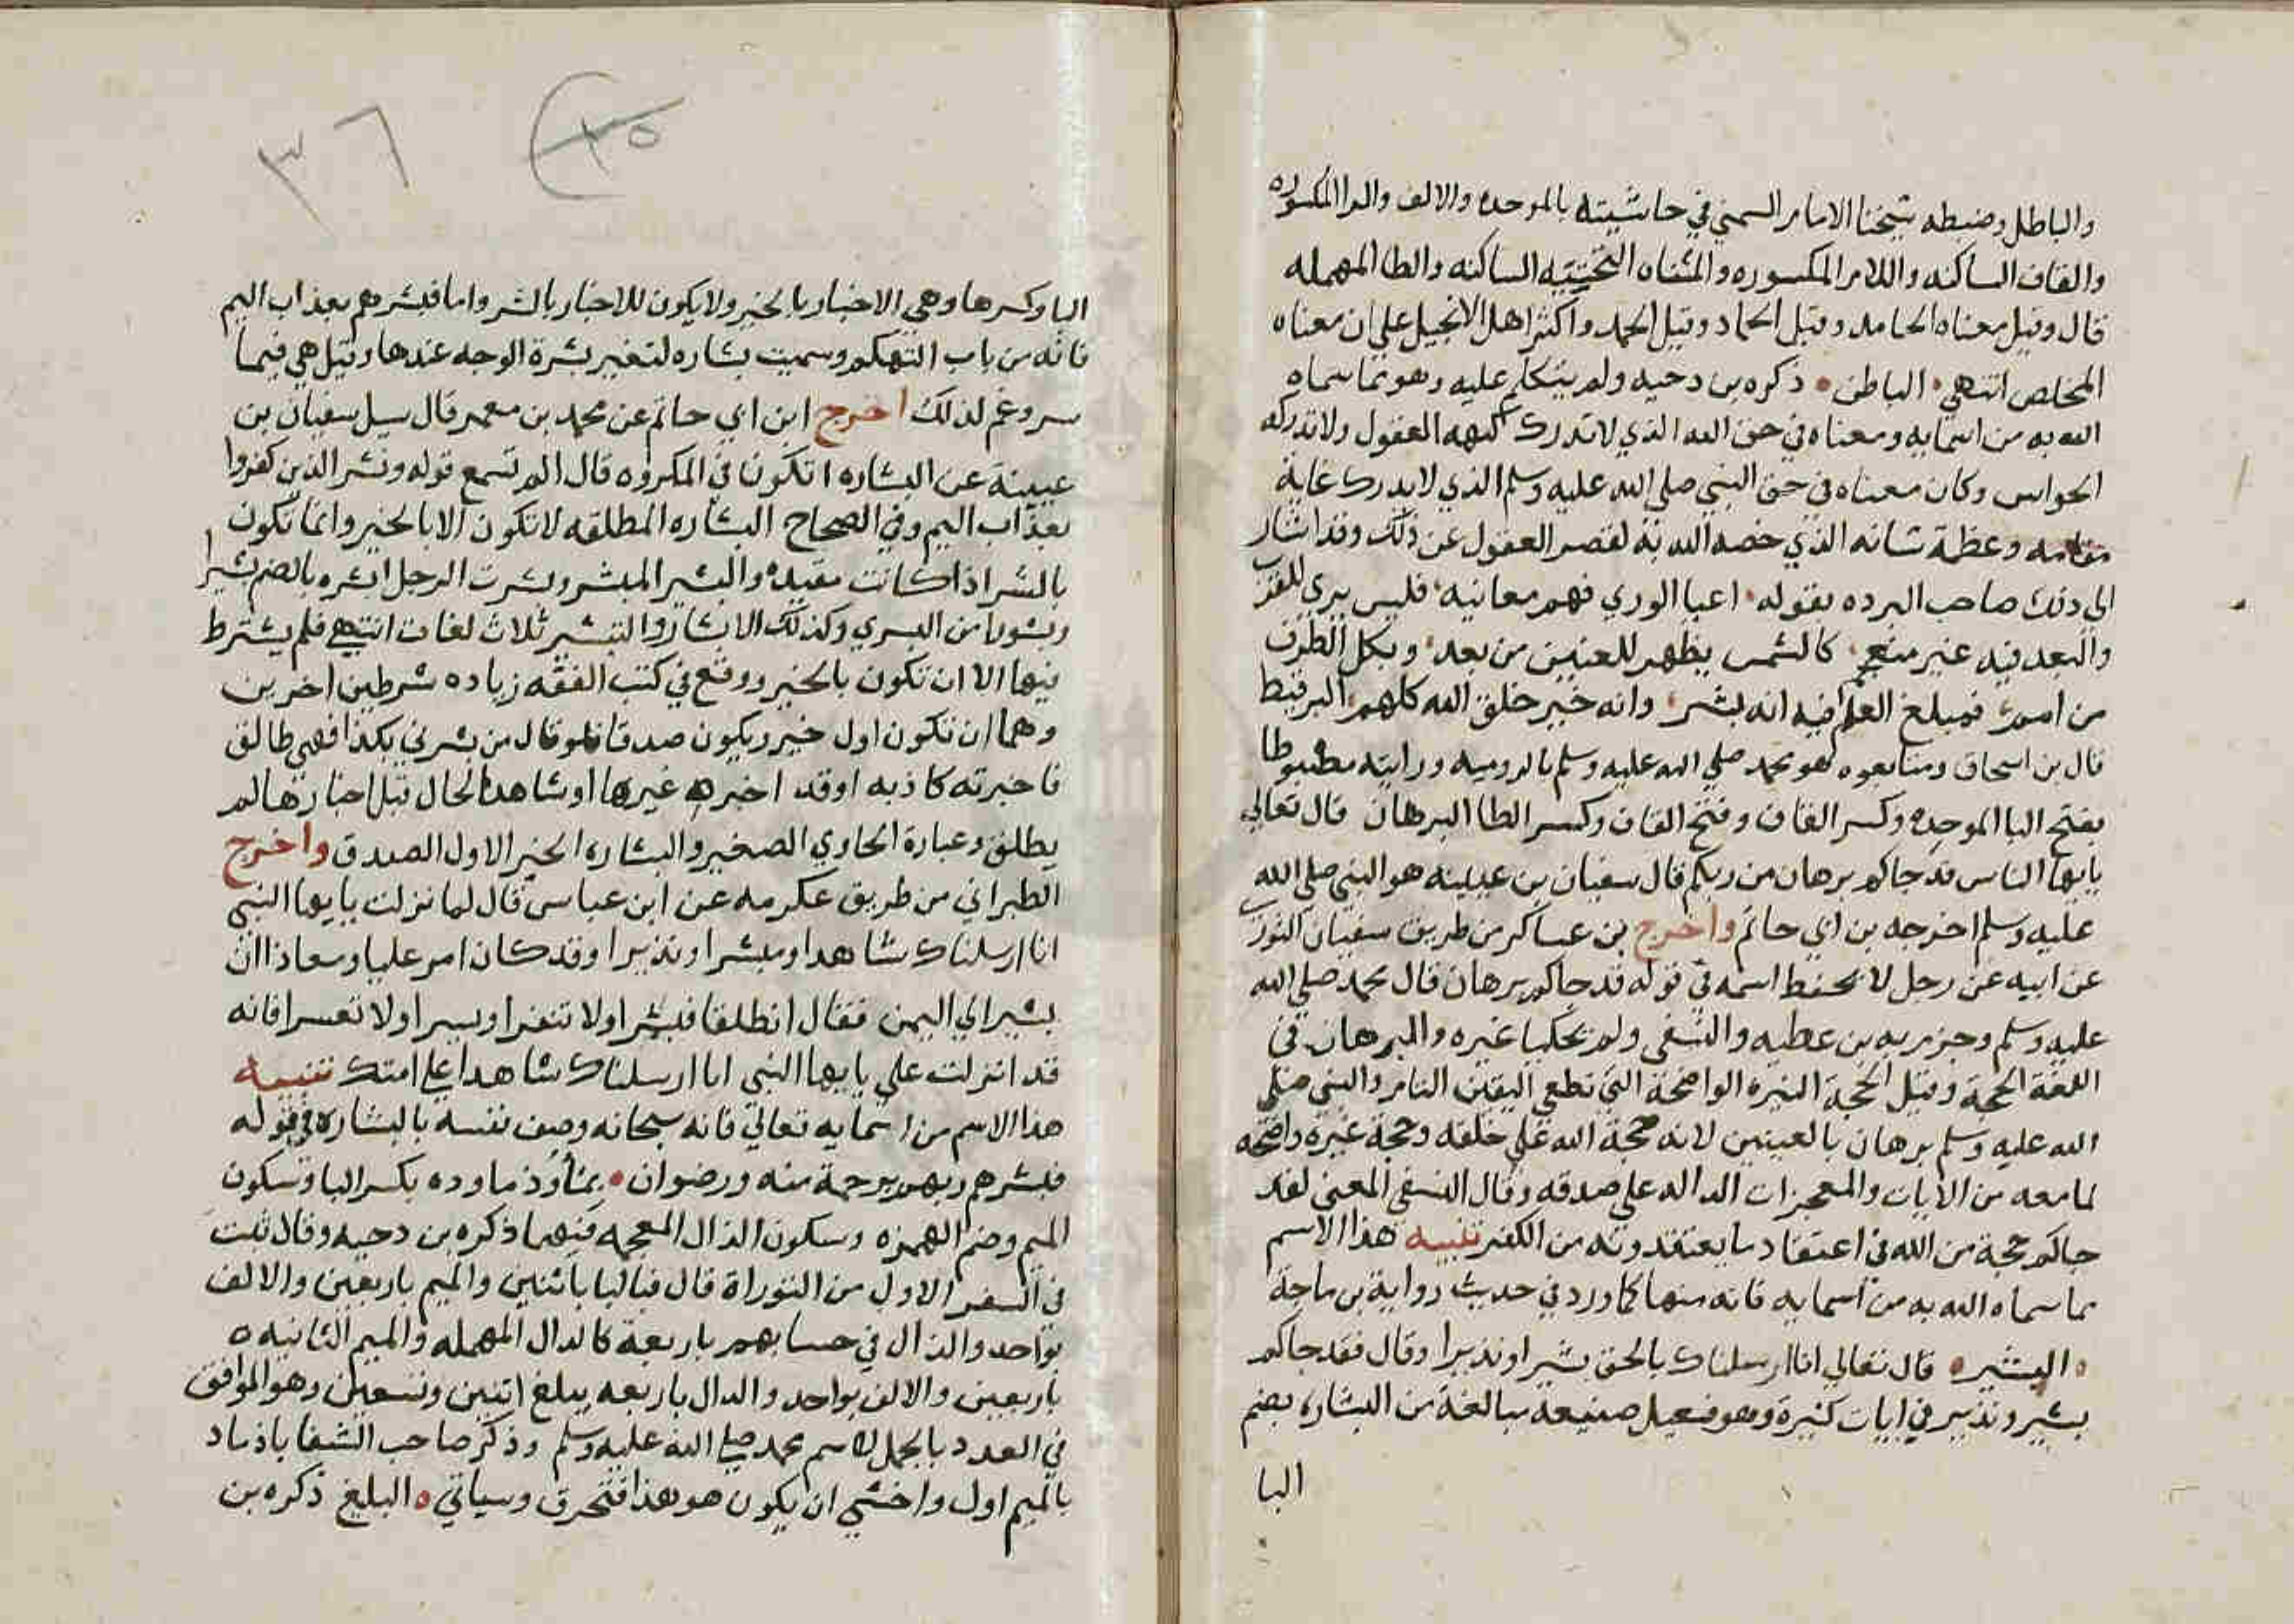 والباطل وضبطه شيخنا الامام الشمني في حاشيته بالموحده والالف والرا المكسوره
والقاف الساكنه واللام المكسوره والمثناه التحتيه الساكنه والطا المهمله
قال وقيل معناه الحامد وقيل الحماد وقيل الحمد واكثر اهل الانجيل علي ان معناه
المخلص انتهي الباطن ذكره بن دحيه ولم يتكلم عليه وهو مما سماه
الله به من اسمايه ومعناه في حق الله الذي لا تدرك كنهه العقول ولا تدركه
الحواس وكان معناه في حق النبي صلي الله عليه وسلم الذي لا يدرك غاية
مقامه وعظمة شانه الذي خصه الله به لقصر العقول عن ذلك وقد اشار
الي ذلك صاحب البرده بقوله اعيا الوري فهم معانيه فليس يري للقرب
والبعد فيه غير منفحم كالشمس يظهر للعينين من بعد وبكل الطرف
من امم فمبلغ العلم فيه انه بشر وانه خير خلق الله كلهم البرقيط
قال بن اسحاق ومتابعوه هو محمد صلي الله عليه وسلم بالروميه ورايته مضبوطا
بفتح البا الموحده وكسر القاف وفتح القاف وكسر الطا البرهان قال تعالي
يايها الناس قد جاكم برهان من ربكم قال سفيان بن عيينه هو النبي صلي الله
عليه وسلم اخرجه بن ابي حاتم واخرج بن عساكر من طريق سفيان الثوري
عن ابيه عن رجل لا يحفظ اسمه في قوله قد جاكم برهان قال محمد صلي الله
عليه وسلم وجزم به بن عطيه والنسفي ولم يحكيا غيره والبرهان في
اللغة الحجة وقيل الحجة النيره الواضحة التي تطعي اليقين التام والنبي صلي
الله عليه وسلم برهان بالعينين لانه حجة الله علي خلقه وحجة غيره واضحه
لما معه من الايات والمعجزات الداله علي صدقه وقال النسفي المعني لقد
جاكم حجة من الله في اعتقاد ما يعتقدونه من الكفر تنبيه هذا الاسم
مما سماه الله به من اسمايه فانه منها كما ورد في حديث رواية بن ماجة
البشير قال تعالي انا ارسلناك بالحق بشيرا ونذيرا وقال فقد جاكم
بشير ونذير في ايات كثيرة وهو فعيل صيغة مبالغة من البشاره بضم
البا
٣٥
٣٦
البا وكسرها وهي الاخبار بالخير ولا يكون للاخبار بالشر واما فبشرهم بعذاب اليم
فانه من باب التهكم وسميت بشاره لتغير بشرة الوجه عندها وقيل هي فيما
سر وغم لذلك اخرج ابن ابي حاتم عن محمد بن معمر قال سيل سفيان بن
عيينة عن البشاره اتكون في المكروه قال الم تسمع قوله وبشر الذين كفروا
بعذاب اليم وفي الصحاح البشاره المطلقه لا تكون الا بالخير وانما تكون
بالشر اذا كانت مقيده والبشير المبشر وبشرت الرجل ابشره بالضم بشرا
وبشورا من البشري وكذلك الابشار والتبشير ثلاث لغات انتهي فلم يشترط
فيها الا ان تكون بالخير ووقع في كتب الفقه زياده شرطين اخرين
وهما ان تكون اول خبر ويكون صدقا فلو قال من بشرني بكذا فهي طالق
فاخبرته كاذبه او قد اخبره غيرها او شاهد الحال قبل اخبارها لم
يطلق وعبارة الحاوي الصغير والبشاره الخبر الاول الصدق واخرج
الطبراني من طريق عكرمه عن ابن عباس قال لما نزلت يايها النبي
انا ارسلناك شاهدا ومبشرا ونذيرا وقد كان امر عليا ومعاذا ان
بشيرا الي اليمن فقال انطلقا فبشرا ولا تنفرا ويسرا ولا تعسرا فانه
قد انزلت علي يايها النبي انا ارسلناك شاهدا علي امتك تنبيه
هذا الاسم من اسمايه تعالي فانه سبحانه وصف نفسه بالبشاره في قوله
فبشرهم ربهم برحمة منه ورضوان بمأذ ماوده بكسر البا وسكون
الميم وضم الهمزه وسكون الذال المعجمه فيهما ذكره بن دحيه وقال ثبت
في السفر الاول من التوراة قال فبالبا باثنين والميم باربعين والالف
بواحد والذال في حسابهم باربعة كالدال المهمله والميم الثانيه
باربعين والالف بواحد والدال باربعه يبلغ اثنين وتسعين وهو الموافق
في العدد بالجمل لاسم محمد صلي الله عليه وسلم وذكر صاحب الشفا باذماد
بالميم اول واخشي ان يكون هو هذا فتحرف وسياتي البليغ ذكره بن